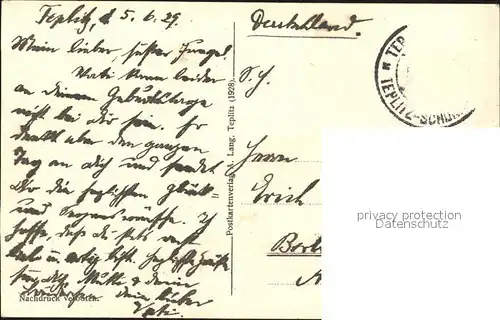 Teplitz, d 5.6.29.
Mein lieber, süßer Junge!
Vati kann leider
an deinem Geburtstage
nicht bei Dir sein. Er
denkt aber den ganzen
Tag an Dich und sendet
Dir die herzlichsten Glück-
und Segenswünsche. Ich
hoffe, daß du stets recht
lieb u. artig bist. Herzlichste Grüße
Mutti & deine
dein lieber
Vati.
Nachdruck verboten.
Postkartenverlag J. Lang, Teplitz (1928)
Deutschland.
TEPLITZ-SCHÖN
S. H.
Herrn
Erich
Berl
privacy protection
Datenschutz